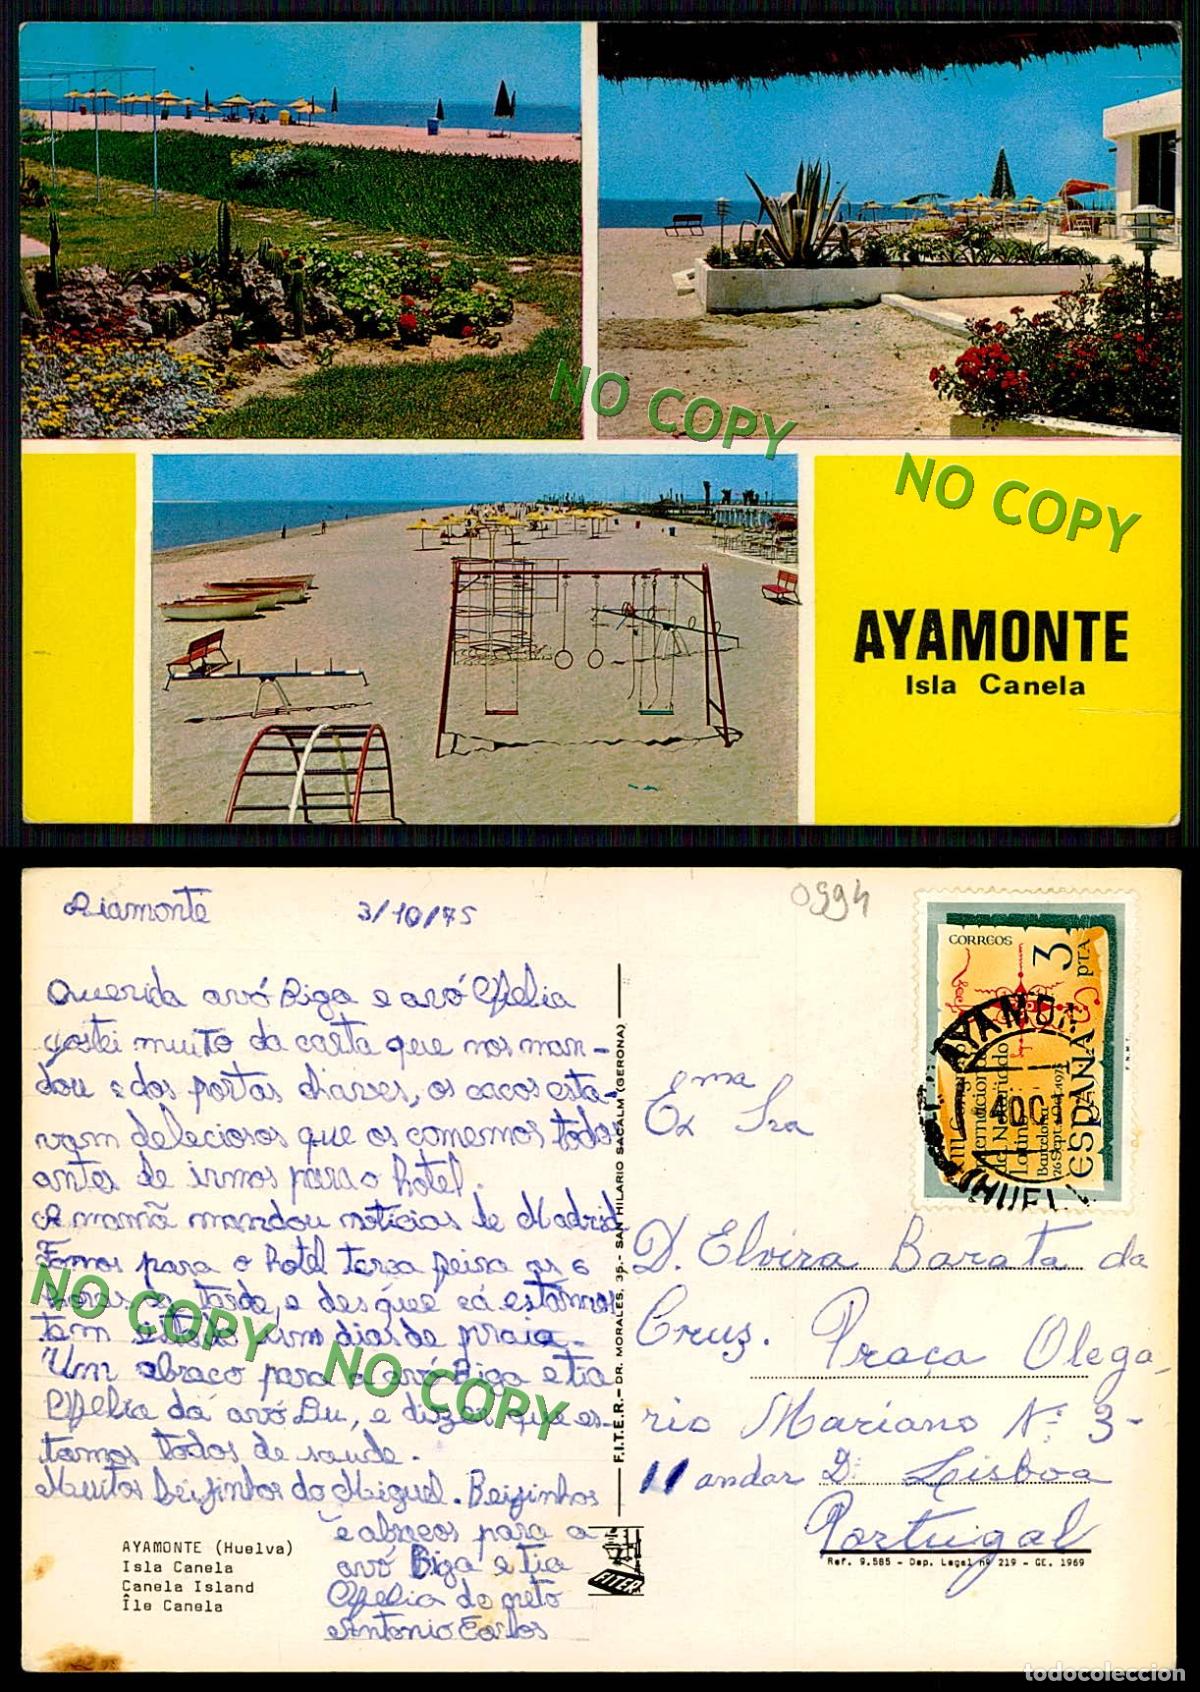 NO COPY
NO COPY
AYAMONTE
Isla Canela
Aiamonte 3/10/75
0994
Querida avó Biga e avó Ofélia
gostei muito da carta que nos man-
dou e dos portas chaves, os cocos esta-
vam deleciosos que os comemos todos
antes de irmos para o hotel.
A mamã mandou notícias de Madrid
Fomos para o hotel terça feira as 6
horas da tarde, e desque cá estamos
tem sido uns dias de praia.
Um abraço para a avó Biga e tia
Ofélia da avó Lu, e dizer que es-
tamos todos de saude.
Muitos beijinhos do Miguel. Beijinhos
e abraços para a
avó Biga e tia
Ofelia do neto
Antonio Carlos
AYAMONTE (Huelva)
Isla Canela
Canela Island
Île Canela
F.I.T.E.R.- DR. MORALES, 35.- SAN HILARIO SACALM (GERONA)
FITER
CORREOS
3 PTA
ESPAÑA
Barcelona
F.N.M.T.
AYAMONTE
HUELVA
Ema
Ex Sra
D. Elvira Barata da
Cruz. Praça Olega-
rio Mariano Nº 3-
11 andar D: Lisboa
Portugal
Ref. 9.585 - Dep. Legal nº 219 - GE. 1969
NO COPY
NO COPY
todocoleccion